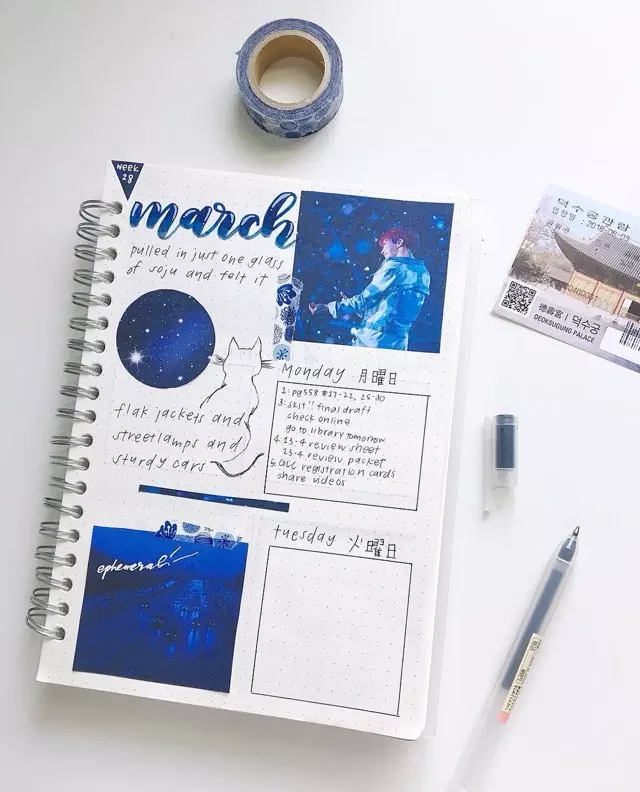 week
28
march
pulled in just one glass
of soju and felt it
flak jackets and
streetlamps and
sturdy cars
ephemeral!
Monday 月曜日
1: pg 558 #17-22, 25-30
3: skit!! final draft
check online
go to library tomorrow
4: 13-4 review sheet
13-4 review packet
5: GCC registration cards
share videos
tuesday 火曜日
덕수궁관람
德壽宮 | 덕수궁
DEOKSUGUNG PALACE